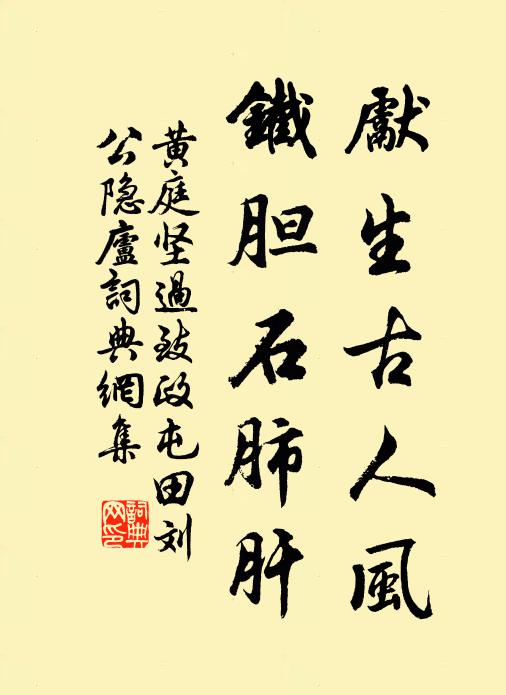 獻生古人風
鐵胆石肺肝
黄庭坚過致政屯田刘
公隐廬詞典網集
詞典
网印